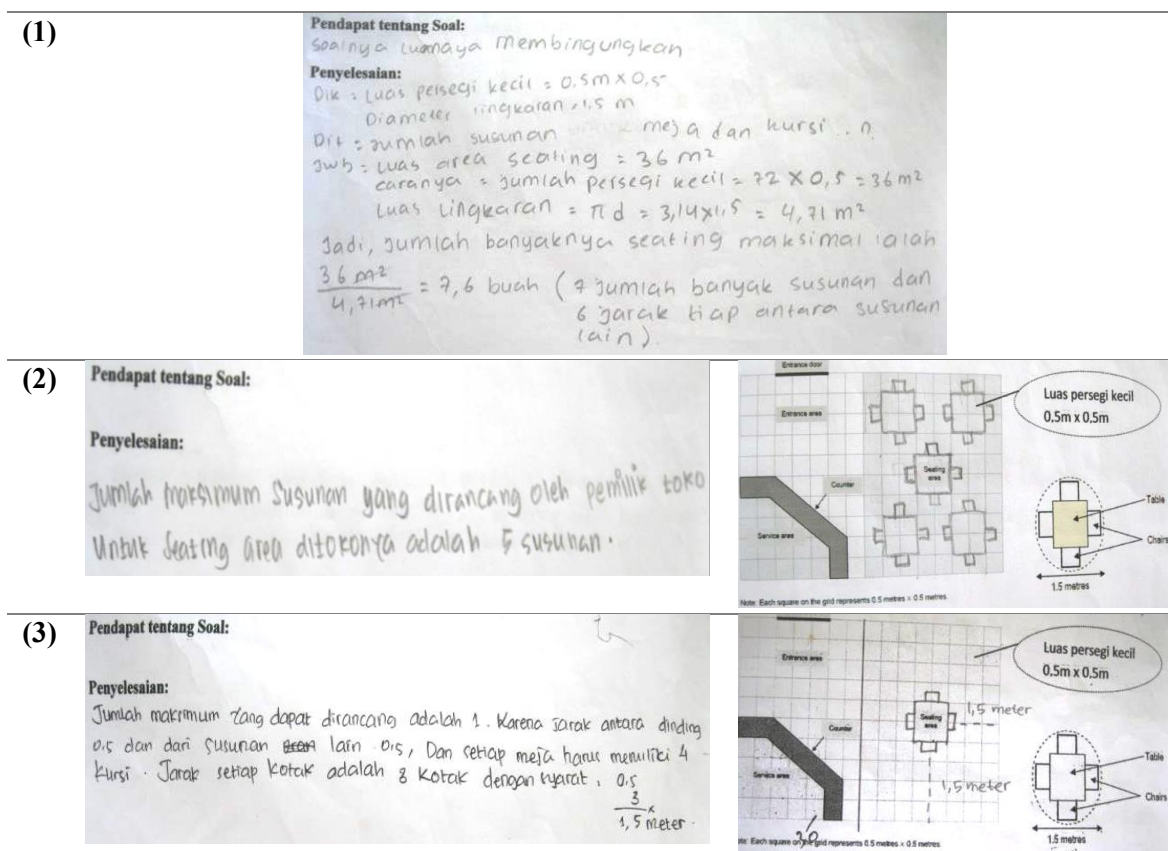 (1)
Pendapat tentang Soal:
Soalnya lumaya membingungkan
Penyelesaian:
Dik = Luas persegi kecil = 0.5m x 0,5
Diameter lingkaran = 1.5 m
Dit = Jumlah susunan meja dan kursi .. ?
Jwb = Luas area seating = 36 m²
caranya = Jumlah persegi kecil = 72 x 0,5 = 36 m²
Luas Lingkaran = π d = 3,14x1,5 = 4,71 m²
Jadi, Jumlah banyaknya seating maksimal ialah
36 m²
4,71m²
= 7,6 buah ( 7 Jumlah banyak susunan dan
6 Jarak tiap antara susunan
lain ).
(2)
Pendapat tentang Soal:
Penyelesaian:
Jumlah maksimum Susunan yang dirancang oleh pemilik toko
Untuk Seating area ditokonya adalah 5 susunan.
Entrance door
Entrance area
Seating area
Counter
Service area
Luas persegi kecil
0,5m x 0,5m
Table
Chairs
1.5 metres
Note: Each square on the grid represents 0.5 metres x 0.5 metres.
(3)
Pendapat tentang Soal:
Penyelesaian:
Jumlah maksimum yang dapat dirancang adalah 1. Karena Jarak antara dinding
0.5 dan dari susunan lain 0.5, Dan setiap meja harus memiliki 4
kursi. Jarak setiap kotak adalah 8 kotak dengan syarat. 0.5
3 x
1,5 meter.
Entrance area
Seating area
1,5 meter
1,5 meter
Counter
Service area
Luas persegi kecil
0,5m x 0,5m
Table
Chairs
1.5 metres
Each square on the grid represents 0.5 metres x 0.5 metres.